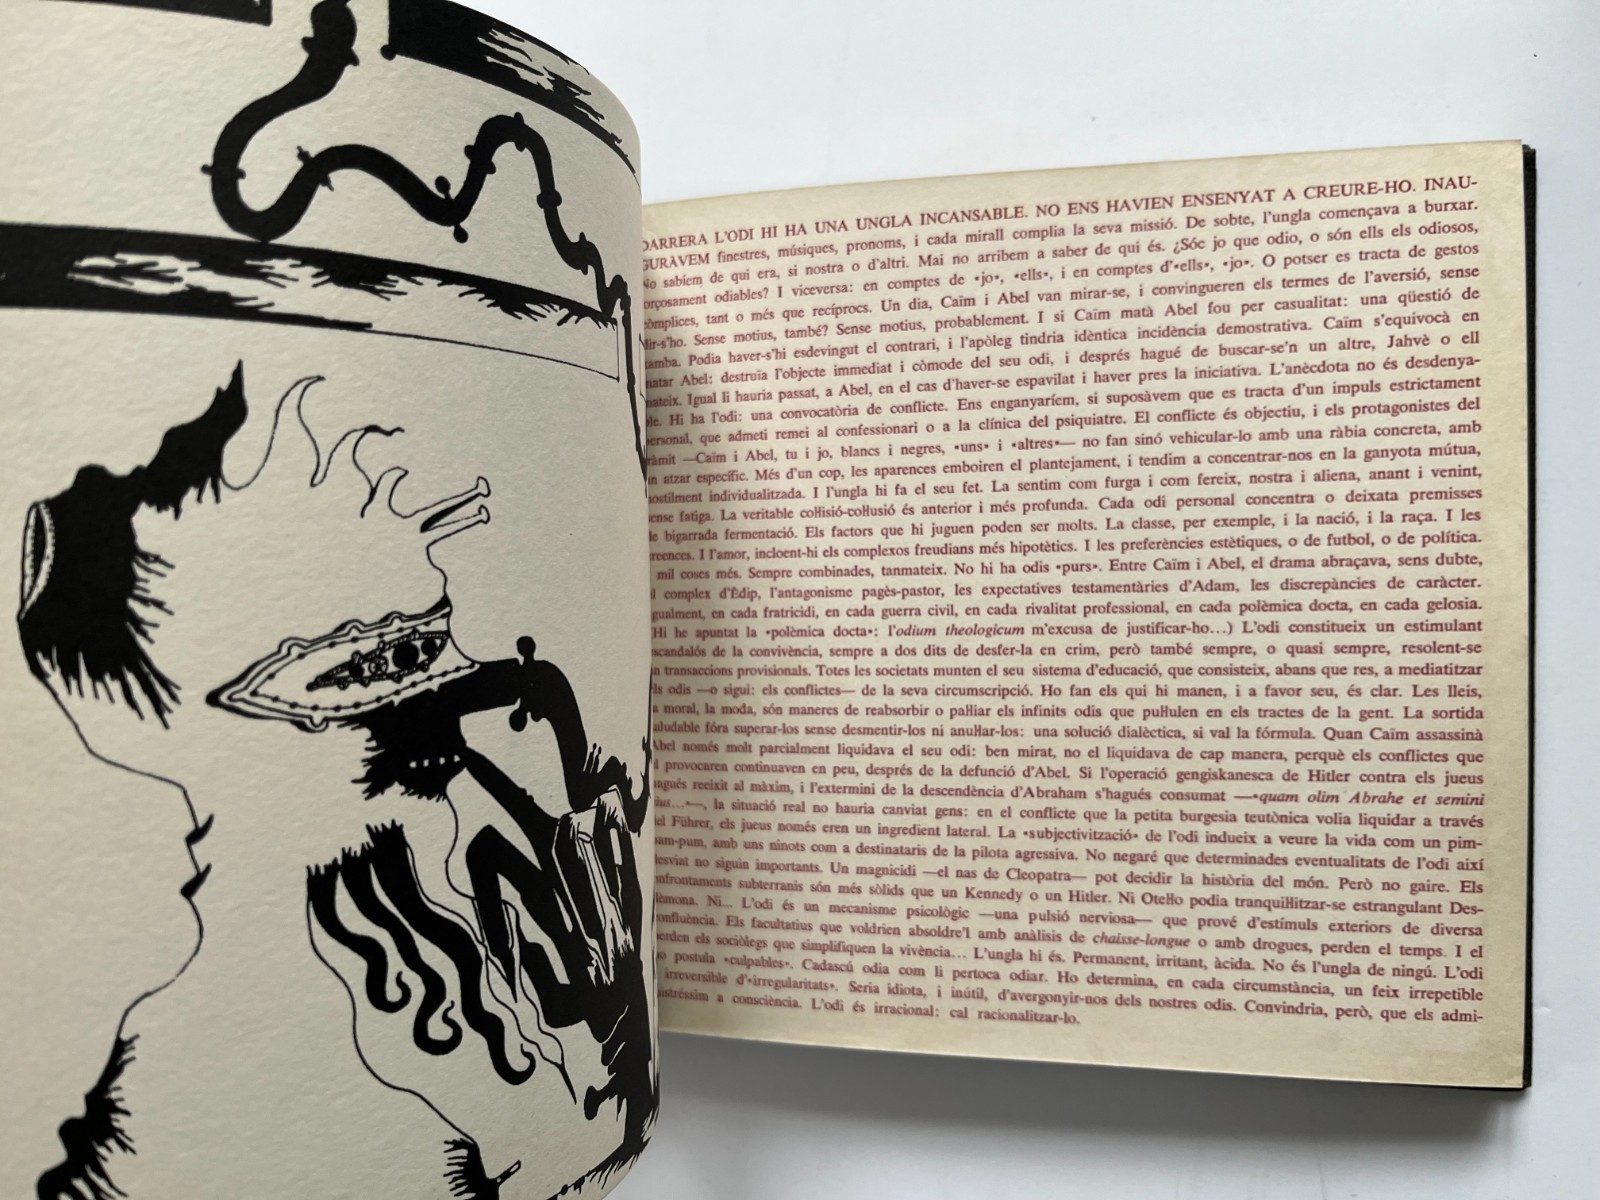 DARRERA L'ODI HI HA UNA UNGLA INCANSABLE. NO ENS HAVIEN ENSENYAT A CREURE-HO. INAU-
GURÀVEM finestres, músiques, pronoms, i cada mirall complia la seva missió. De sobte, l'ungla començava a burxar.
No sabíem de qui era, si nostra o d'altri. Mai no arribem a saber de qui és. ¿Sóc jo que odio, o són ells els odiosos,
forçosament odiables? I viceversa: en comptes de «jo», «ells», i en comptes d'«ells», «jo». O potser es tracta de gestos
còmplices, tant o més que recíprocs. Un dia, Caïm i Abel van mirar-se, i convingueren els termes de l'aversió, sense
dir-s'ho. Sense motius, també? Sense motius, probablement. I si Caïm matà Abel fou per casualitat: una qüestió de
tamba. Podia haver-s'hi esdevingut el contrari, i l'apòleg tindria idèntica incidència demostrativa. Caïm s'equivocà en
matar Abel: destruïa l'objecte immediat i còmode del seu odi, i després hagué de buscar-se'n un altre, Jahvè o ell
mateix. Igual li hauria passat, a Abel, en el cas d'haver-se espavilat i haver pres la iniciativa. L'anècdota no és desdenya-
ble. Hi ha l'odi: una convocatòria de conflicte. Ens enganyaríem, si suposàvem que es tracta d'un impuls estrictament
personal, que admeti remei al confessionari o a la clínica del psiquiatre. El conflicte és objectiu, i els protagonistes del
tràmit —Caïm i Abel, tu i jo, blancs i negres, «uns» i «altres»— no fan sinó vehicular-lo amb una ràbia concreta, amb
un atzar específic. Més d'un cop, les aparences emboiren el plantejament, i tendim a concentrar-nos en la ganyota mútua,
hostilment individualitzada. I l'ungla hi fa el seu fet. La sentim com furga i com fereix, nostra i aliena, anant i venint,
sense fatiga. La veritable col·lisió-col·lusió és anterior i més profunda. Cada odi personal concentra o deixata premisses
de bigarrada fermentació. Els factors que hi juguen poden ser molts. La classe, per exemple, i la nació, i la raça. I les
creences. I l'amor, incloent-hi els complexos freudians més hipotètics. I les preferències estètiques, o de futbol, o de política.
I mil coses més. Sempre combinades, tanmateix. No hi ha odis «purs». Entre Caïm i Abel, el drama abraçava, sens dubte,
el complex d'Èdip, l'antagonisme pagès-pastor, les expectatives testamentàries d'Adam, les discrepàncies de caràcter.
Igualment, en cada fratricidi, en cada guerra civil, en cada rivalitat professional, en cada polèmica docta, en cada gelosia.
(Hi he apuntat la «polèmica docta»: l'odium theologicum m'excusa de justificar-ho...) L'odi constitueix un estimulant
escandalós de la convivència, sempre a dos dits de desfer-la en crim, però també sempre, o quasi sempre, resolent-se
en transaccions provisionals. Totes les societats munten el seu sistema d'educació, que consisteix, abans que res, a mediatitzar
els odis —o sigui: els conflictes— de la seva circumscripció. Ho fan els qui hi manen, i a favor seu, és clar. Les lleis,
la moral, la moda, són maneres de reabsorbir o pal·liar els infinits odis que pul·lulen en els tractes de la gent. La sortida
saludable fóra superar-los sense desmentir-los ni anul·lar-los: una solució dialèctica, si val la fórmula. Quan Caïm assassinà
Abel només molt parcialment liquidava el seu odi: ben mirat, no el liquidava de cap manera, perquè els conflictes que
el provocaren continuaven en peu, després de la defunció d'Abel. Si l'operació gengiskanesca de Hitler contra els jueus
hagués reeixit al màxim, i l'extermini de la descendència d'Abraham s'hagués consumat —«quam olim Abrahe et semini
eius...»—, la situació real no hauria canviat gens: en el conflicte que la petita burgesia teutònica volia liquidar a través
del Führer, els jueus només eren un ingredient lateral. La «subjectivització» de l'odi indueix a veure la vida com un pim-
pam-pum, amb uns ninots com a destinataris de la pilota agressiva. No negaré que determinades eventualitats de l'odi així
desviat no siguin importants. Un magnicidi —el nas de Cleopatra— pot decidir la història del món. Però no gaire. Els
enfrontaments subterranis són més sòlids que un Kennedy o un Hitler. Ni Otel·lo podia tranquil·litzar-se estrangulant Des-
dèmona. Ni... L'odi és un mecanisme psicològic —una pulsió nerviosa— que prové d'estímuls exteriors de diversa
confluència. Els facultatius que voldrien absoldre'l amb anàlisis de chaisse-longue o amb drogues, perden el temps. I el
perden els sociòlegs que simplifiquen la vivència... L'ungla hi és. Permanent, irritant, àcida. No és l'ungla de ningú. L'odi
no postula «culpables». Cadascú odia com li pertoca odiar. Ho determina, en cada circumstància, un feix irrepetible
i irreversible d'«irregularitats». Seria idiota, i inútil, d'avergonyir-nos dels nostres odis. Convindria, però, que els admi-
nistréssim a consciència. L'odi és irracional: cal racionalitzar-lo.